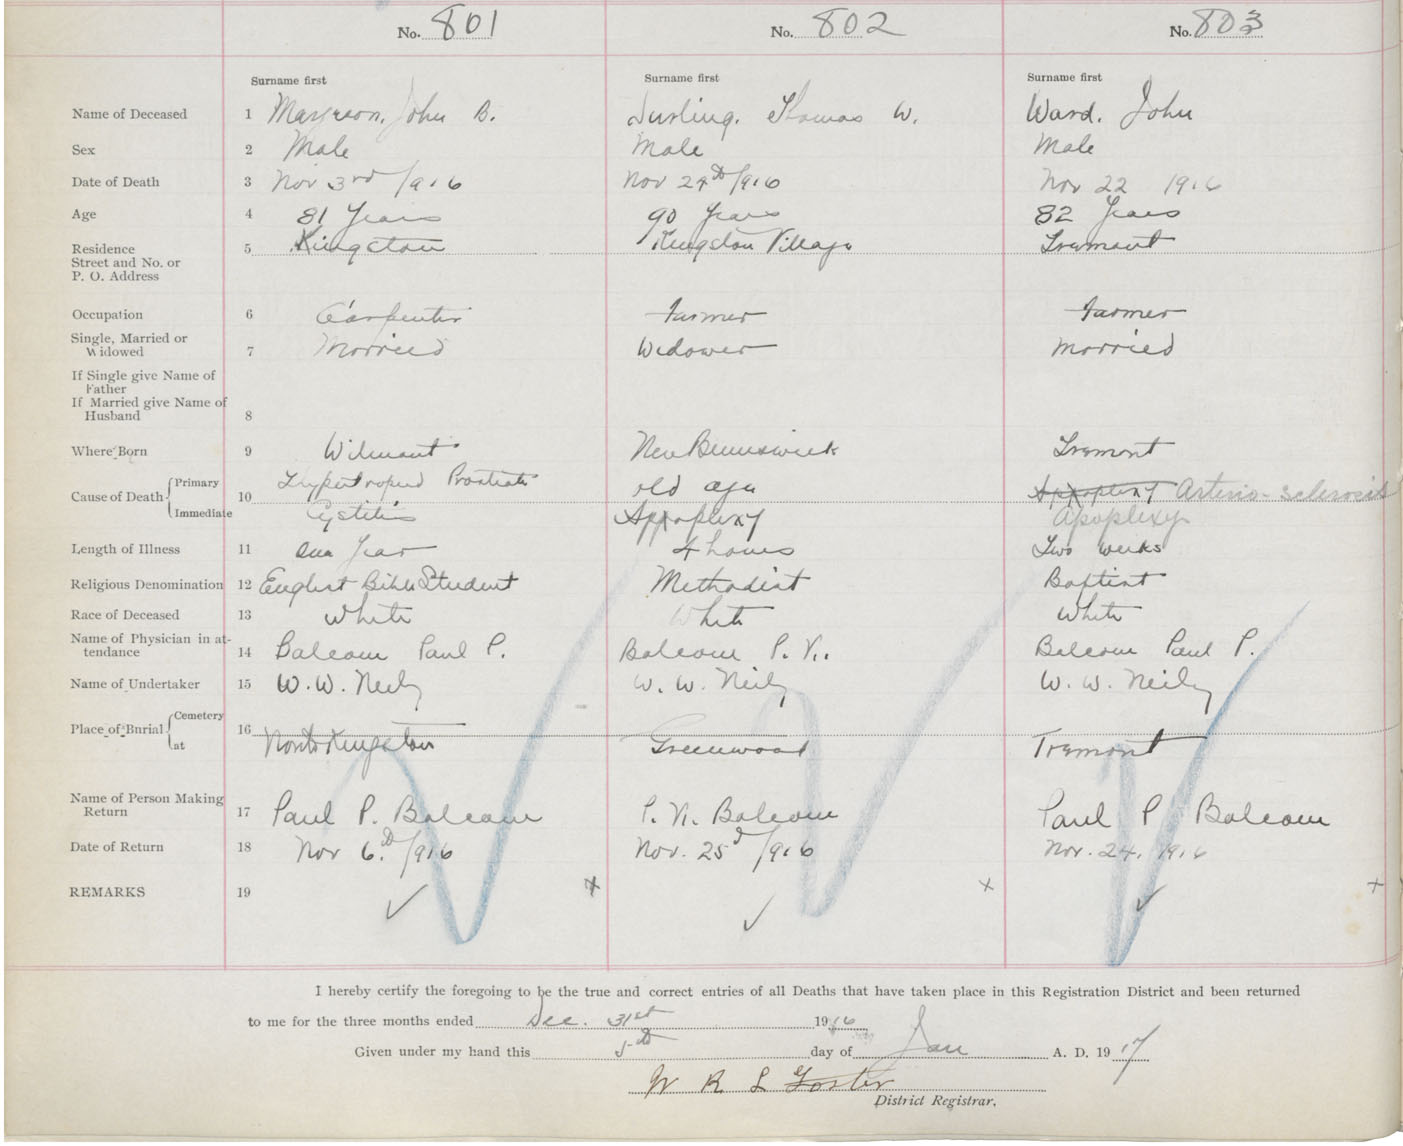 No. 801 No. 802 No. 803
Surname first Surname first Surname first
Name of Deceased 1 John B. Durling. Thomas W. Ward. John
Sex 2 Male Male Male
Date of Death 3 Nov 3rd 1916 Nov 24th 1916 Nov 22 1916
Age 4 81 Years 90 Years 82 Years
Residence
Street and No. or
P. O. Address 5 Kingston Kingston Village Tremont
Occupation 6 Carpenter Farmer Farmer
Single, Married or
Widowed 7 Married Widower Married
If Single give Name of
Father
If Married give Name of
Husband 8
Where Born 9 Wilmont New Brunswick Tremont
Cause of Death 10
Primary Prostrate old age Appoplexy Arterio-sclerosis
Immediate Cystitis Appoplexy Apoplexy
Length of Illness 11 One Year 4 hours Two weeks
Religious Denomination 12 Bible Student Methodist Baptist
Race of Deceased 13 White White White
Name of Physician in at-
tendance 14 Balcom Paul P. Balcom P. Balcom Paul P.
Name of Undertaker 15 W. W. Neily W. W. Neily W. W. Neily
Place of Burial 16
Cemetery
at Kingston Greenwood Tremont
Name of Person Making
Return 17 Paul P. Balcom P. Balcom Paul P Balcom
Date of Return 18 Nov 6.th 1916 Nov. 25th 1916 Nov. 24. 1916
REMARKS 19
I hereby certify the foregoing to be the true and correct entries of all Deaths that have taken place in this Registration District and been returned
to me for the three months ended Dec. 31st 1916
Given under my hand this 5th day of Jan A. D. 1917
W R L Foster
District Registrar.